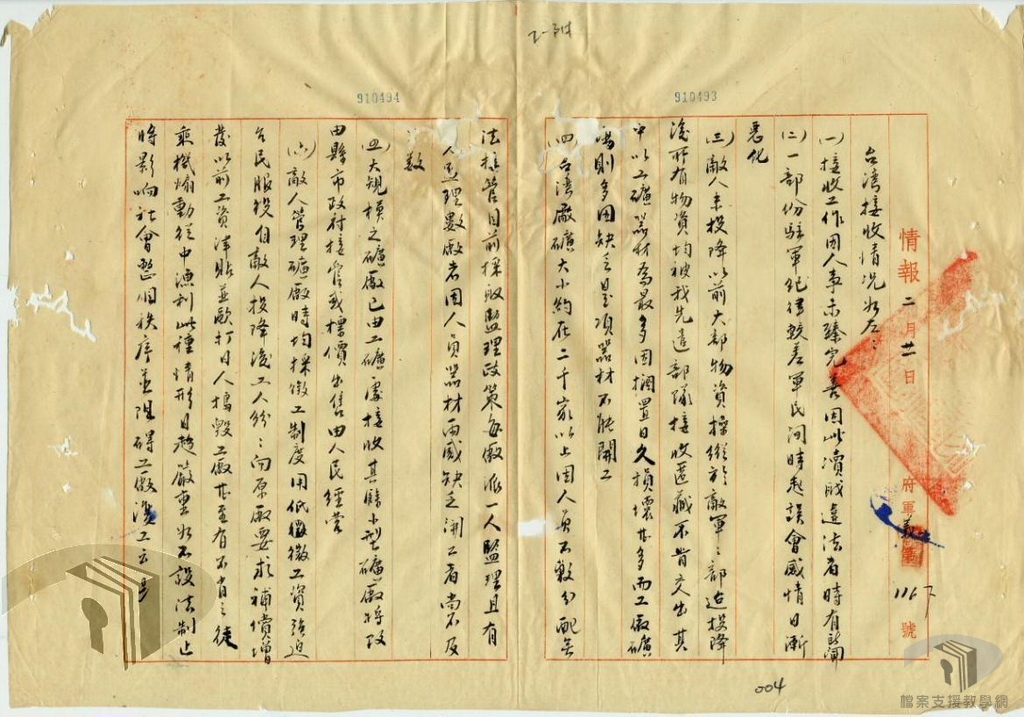 2-314
910493
910494
情報 二月廿一日
府軍義字
1167
號
台湾接收情况如左：
(一)接收工作因人事未臻完善因此凟賍違法者時有所闻
(二)一部份駐軍纪律較差軍民间時起誤會感情日漸
惡化
(三)敵人未投降以前大部物資操縱於敵軍々部迨投降
後所有物資均被我先遣部隊接收匿藏不肯交出其
中以工礦器材為最多因擱置日久損壞甚多而工廠礦
塲則多因缺乏是項器材不能開工
(四)台湾廠礦大小約在二千家以上因人員不敷分配無
法接管目前採取監理政策每廠派一人監理且有
一人监理數廠者因人員器材両感缺乏開工者尚不及
数
(五)大规模之礦廠已由工礦處接收其賸小型礦廠將改
由縣市政府接管或標價出售由人民經营
(六)敵人管理礦廠時均採徵工制度用低微工資强迫
台民服役自敵人投降後工人紛々向原廠要求補償增
發以前工資津貼並歐打日人搗毀工廠甚至有不肖之徒
乘機煽動從中漁利此種情形日趋嚴重如不設法制止
將影响社會整個秩序並阻碍工廠復工云
004
檔案支援教學網